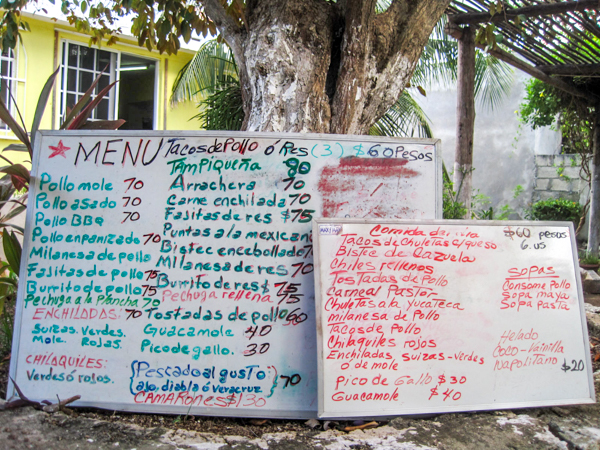 ★ MENU Tacos de Pollo ó Res (3) $60 Pesos
Pollo mole 70
Pollo asado 70
Pollo BBQ 70
Pollo enpanizado 70
Milanesa de pollo 75
Fajitas de pollo 75
Burrito de pollo 75
Pechuga a la Plancha 70
ENCHILADAS: 70
Suizas. Verdes.
Mole. Rojas.
CHILAQUILES:
Verdes ó rojos.
TAMPIQUEÑA 90
Arrachera 70
Carne enchilada 70
Fajitas de res $75
Puntas a la mexicana
Bistec encebollado 70
Milanesa de res 70
Burrito de res $75
Pechuga rellena 75
Tostadas de pollo
Guacamole 40
Pico de gallo. 30
Pescado al gusto:
ajo, diabla ó veracruz 70
CAMARONES $130
Comida $60 pesos
6. us
Tacos de Chuletas c/queso
Bistec de Cazuela
Chiles rellenos
Tostadas de Pollo
Carne al Pastor
Chuletas a la Yucateca
milanesa de Pollo
Tacos de Pollo
Chilaquiles rojos
Enchiladas, suizas-verdes
ó de mole
Pico de Gallo $30
Guacamole $40
SOPAS
Consome Pollo
Sopa maya
Sopa pasta
Helado
Coco-Vainilla
Napolitano $20